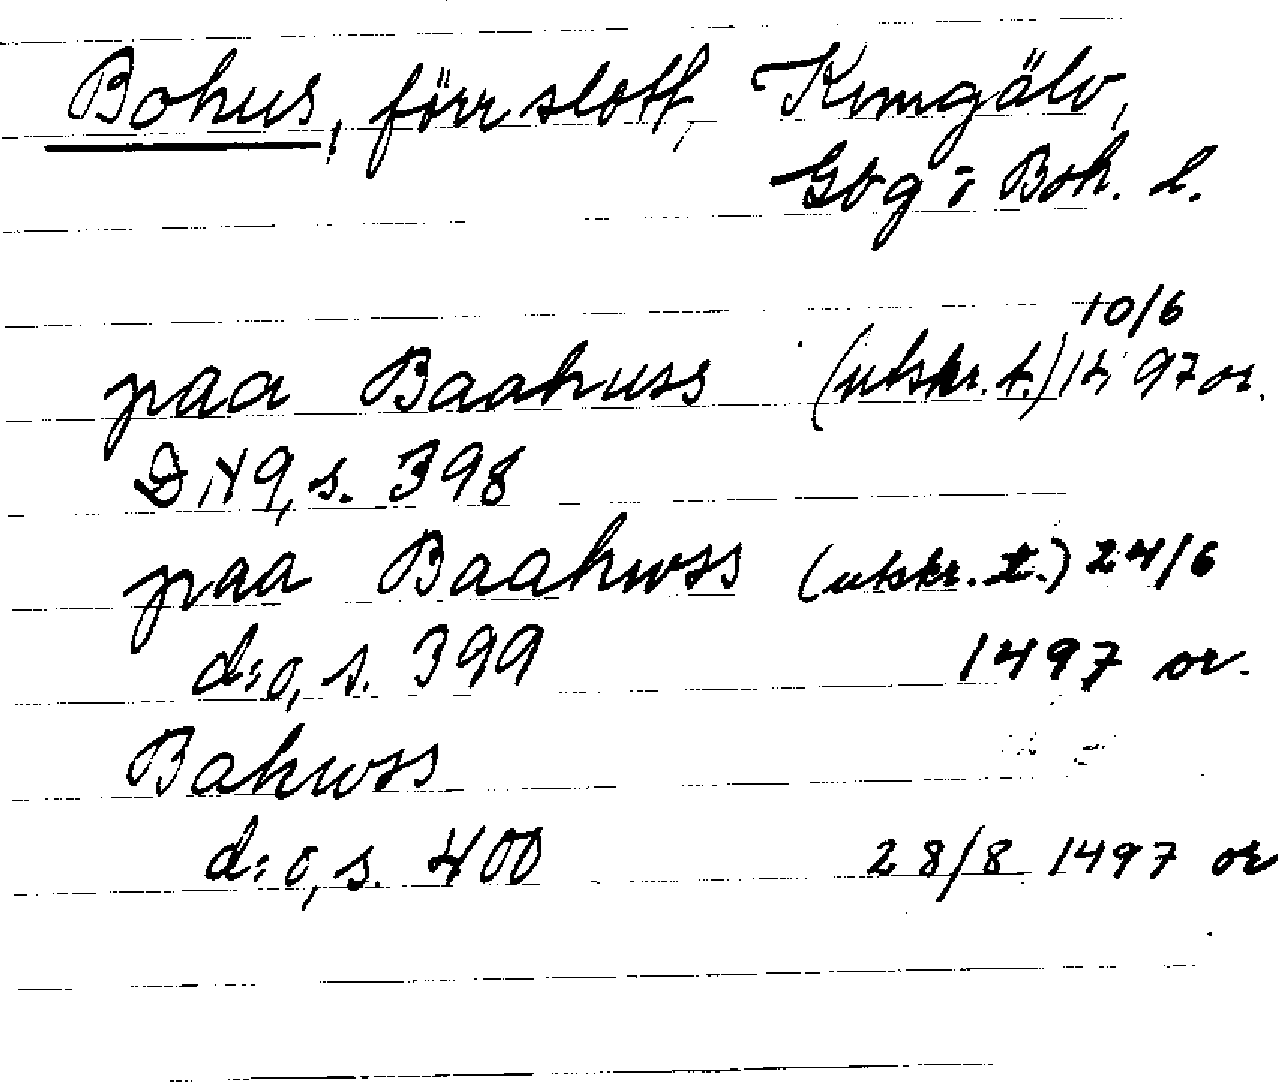 Bohus, förr slott, Kungälv,
Gbg o Boh. l.
paa Baahuss (utskr. f.) 10/6 1497 or.
DN 9, s. 398
paa Baahwss (utskr. f.) 24/6
d:o, s. 399 1497 or.
Bahwss
d:o, s. 400 28/8 1497 or